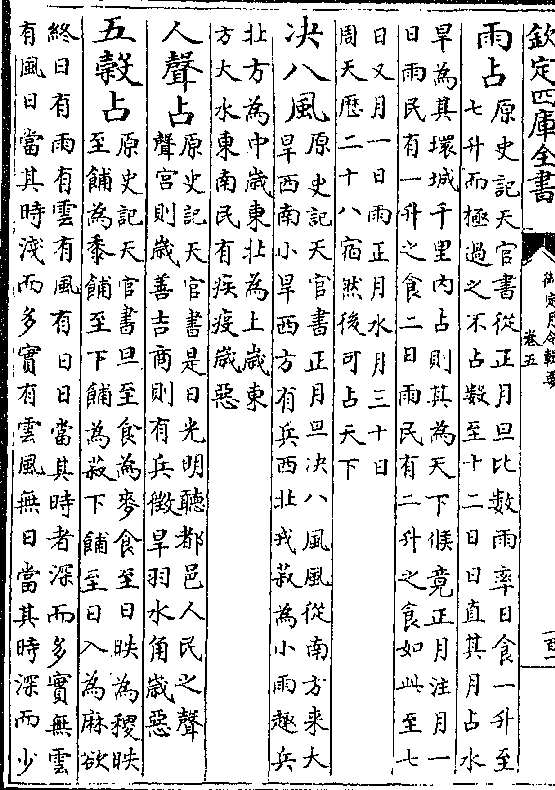 欽定四庫全書
御定月令輯要
卷五
百一
雨占
原史記天官書從正月旦比數雨率日食一升至
七升而極過之不占數至十二日日直其月占水
旱為其環城千里内占則其為天下候竟正月注月一
日雨民有一升之食二日雨民有二升之食如此至七
日又月一日雨正月水月三十日
周天歷二十八宿然後可占天下
决八風
原史記天官書正月旦决八風風從南方来大
旱西南小旱西方有兵西北戎菽為小雨趣兵
北方為中歲東北為上歲東
方大水東南民有疾疫歲惡
人聲占
原史記天官書是日光明聽都邑人民之聲
聲宮則歲善吉商則有兵徵旱羽水角歲惡
五榖占
原史記天官書旦至食為麥食至日昳為稷昳
至餔為黍餔至下餔為菽下餔至日入為麻欲
終日有雨有雲有風有日日當其時者深而多實無雲
有風日當其時淺而多實有雲風無日當其時深而少